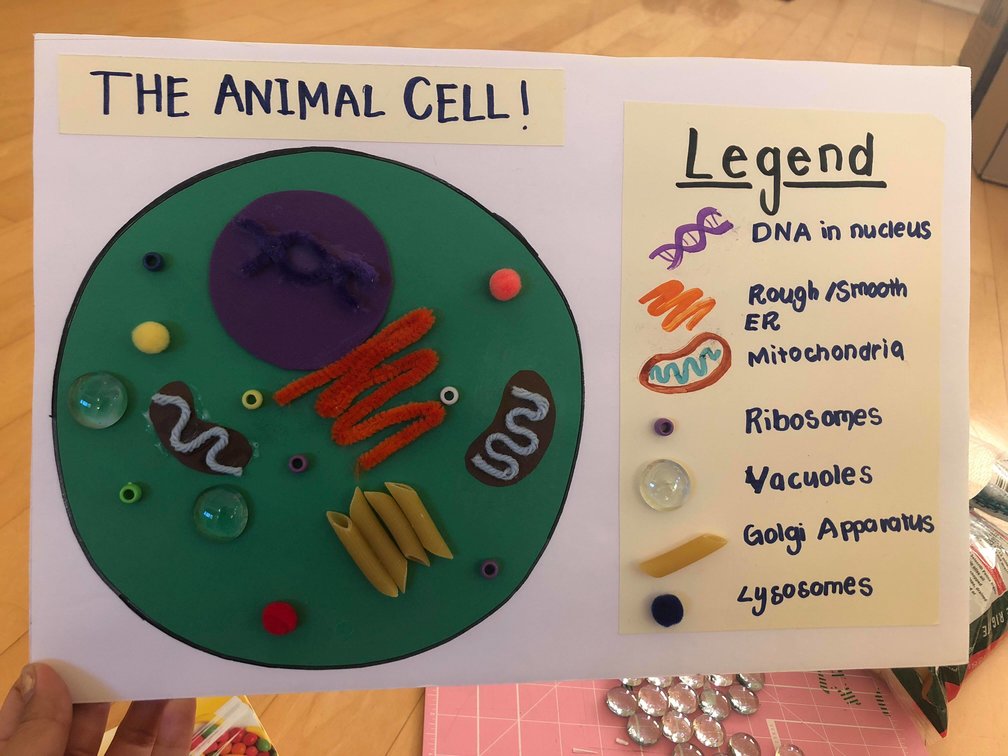 THE ANIMAL CELL!
Legend
DNA in nucleus
Rough/Smooth
ER
Mitochondria
Ribosomes
Vacuoles
Golgi Apparatus
Lysosomes